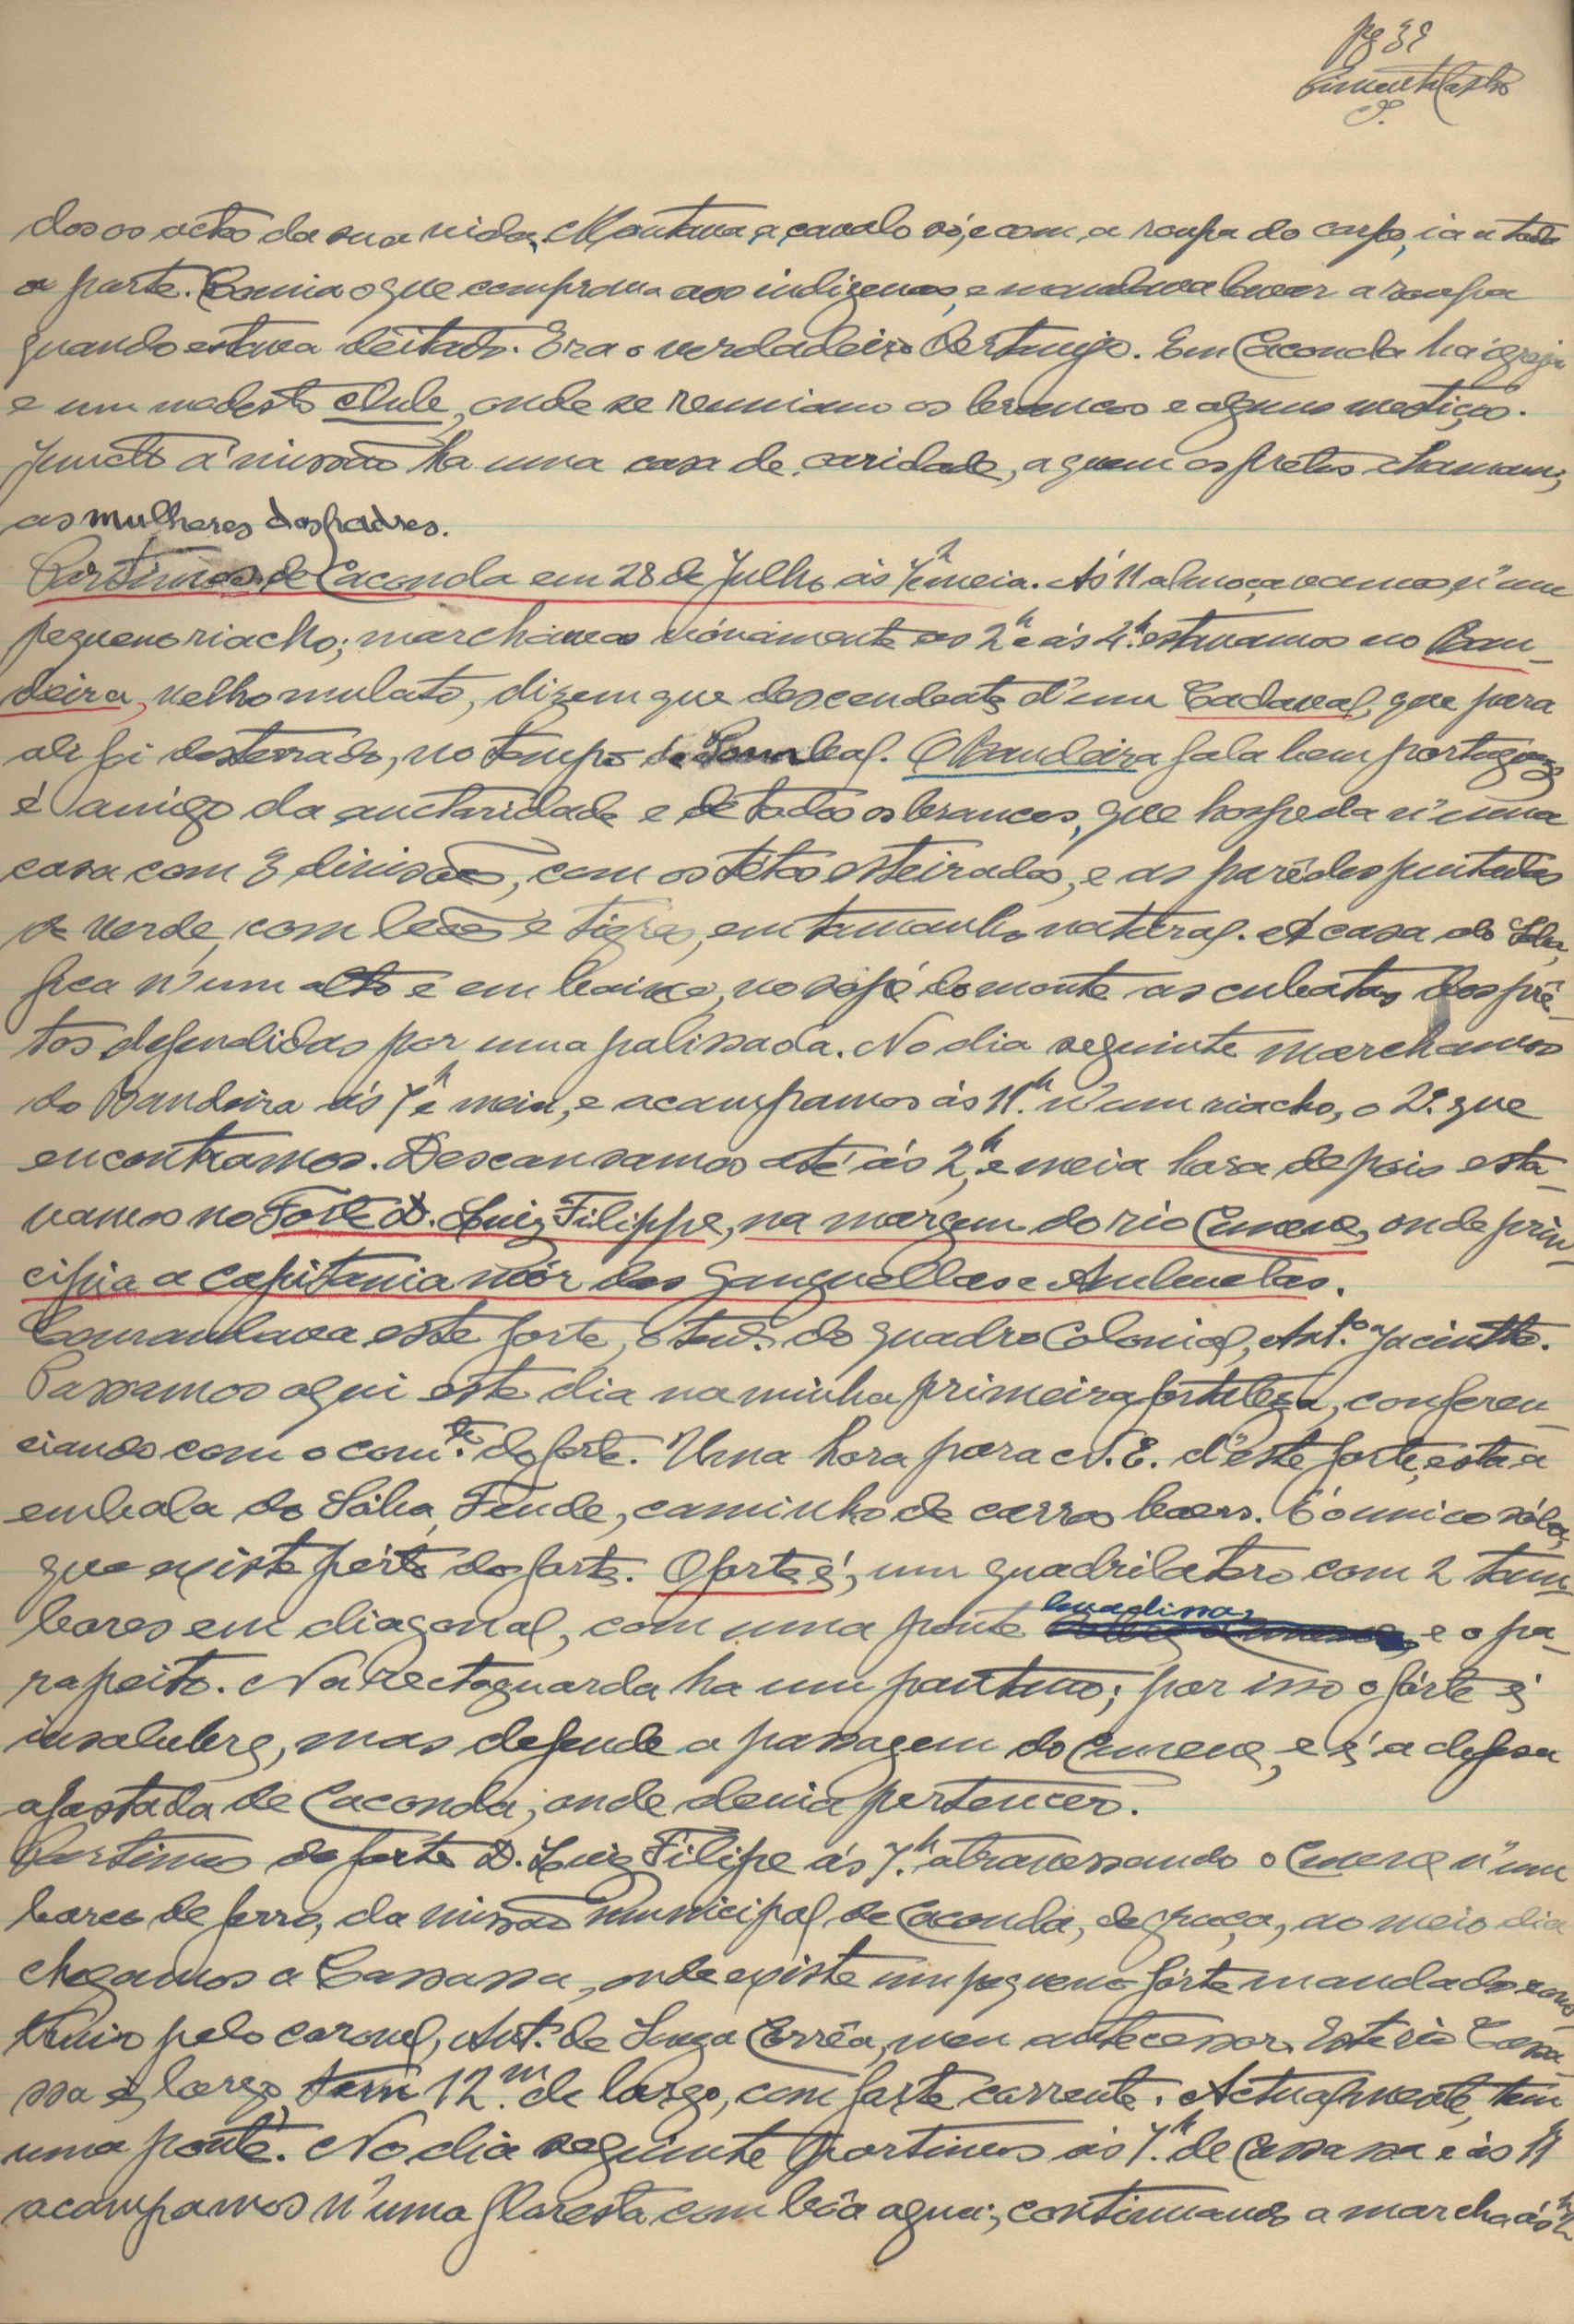 pg 32
dos os actos da sua vida. Montava a cavalo só, e com a roupa do corpo, ia a toda
a parte. Comia o que comprava aos indigenas, e mandava lavar a roupa
quando estava deitado. Era o verdadeiro Portuguez. Em Caconda ha igreja
e um modesto club, onde se reuniam os brancos e alguns mestiços.
Juncto á missão ha uma casa de caridade, a quem os pretos chamam;
as mulheres dos padres.
Partimos de Caconda em 28 de Julho ás 7h e meia. Ás 11 almoçavamos n'um
pequeno riacho; marchámos nóvamente ás 2h e ás 4h. estavamos no Ban-
deira, velho mulato, dizem que descendente d'um Cadaval, que para
ali foi desterrado, no tempo de Pombal. O Bandeira fala bem portuguez
é amigo da auctoridade e de todos os brancos, que hospeda n'uma
casa com 3 divisões, com os tétos esteirados, e as parêdes pintadas
de verde, com leões e tigres, em tamanho natural. A casa do Soba,
fica n'um alto e em baixo, no sopé do monte as cubatas dos prê-
tos defendidas por uma palissada. No dia seguinte marchamos
do Bandeira ás 7h e meia, e acampamos ás 11h. n'um riacho, o 2º. que
encontramos. Descansamos até ás 2h, e meia hora depois esta-
vamos no Forte D. Luiz Filippe, na margem do rio Cunene, onde prin-
cipia a capitania mór dos Ganguellas e Ambuelas.
Comandava este forte, o ten.e do quadro Colonial, Ant.o Jacintho.
Passamos aqui este dia na minha primeira fortaleza, conferen-
ciando com o com.te do forte. Uma hora para N. E. d'este forte, está a
embala do Sóba, Tende, caminho de carros boers. É o unico sóba,
que existe pérto do forte. O forte é, um quadrilatero com 2 tam-
bores em diagonal, com uma ponte levadissa, e o pa-
rapeito. Na rectaguarda ha um pantano; por isso o fórte é
insalubre, mas defende a passagem do Cunene, e é a defesa
afastada de Caconda, onde devia pertencer.
Partimos do forte D. Luiz Filipe ás 7.h atravessando o Cunene n'um
barco de ferro, da missão municipal de Caconda, de graça, ao meio dia
chegamos a Cassassa, onde existe um pequeno fórte mandado cons-
truir pelo coronel, Ant.o de Souza Corrêa, meu antecessor. Este rio Cassa-
ssa é largo, tem 12.m de largo, com forte corrente. Actualmente, tem
uma ponte. No dia seguinte partimos ás 7.h de Cassassa e ás 11
acampamos n'uma floresta com bôa agua; continuando a marcha ás 2h